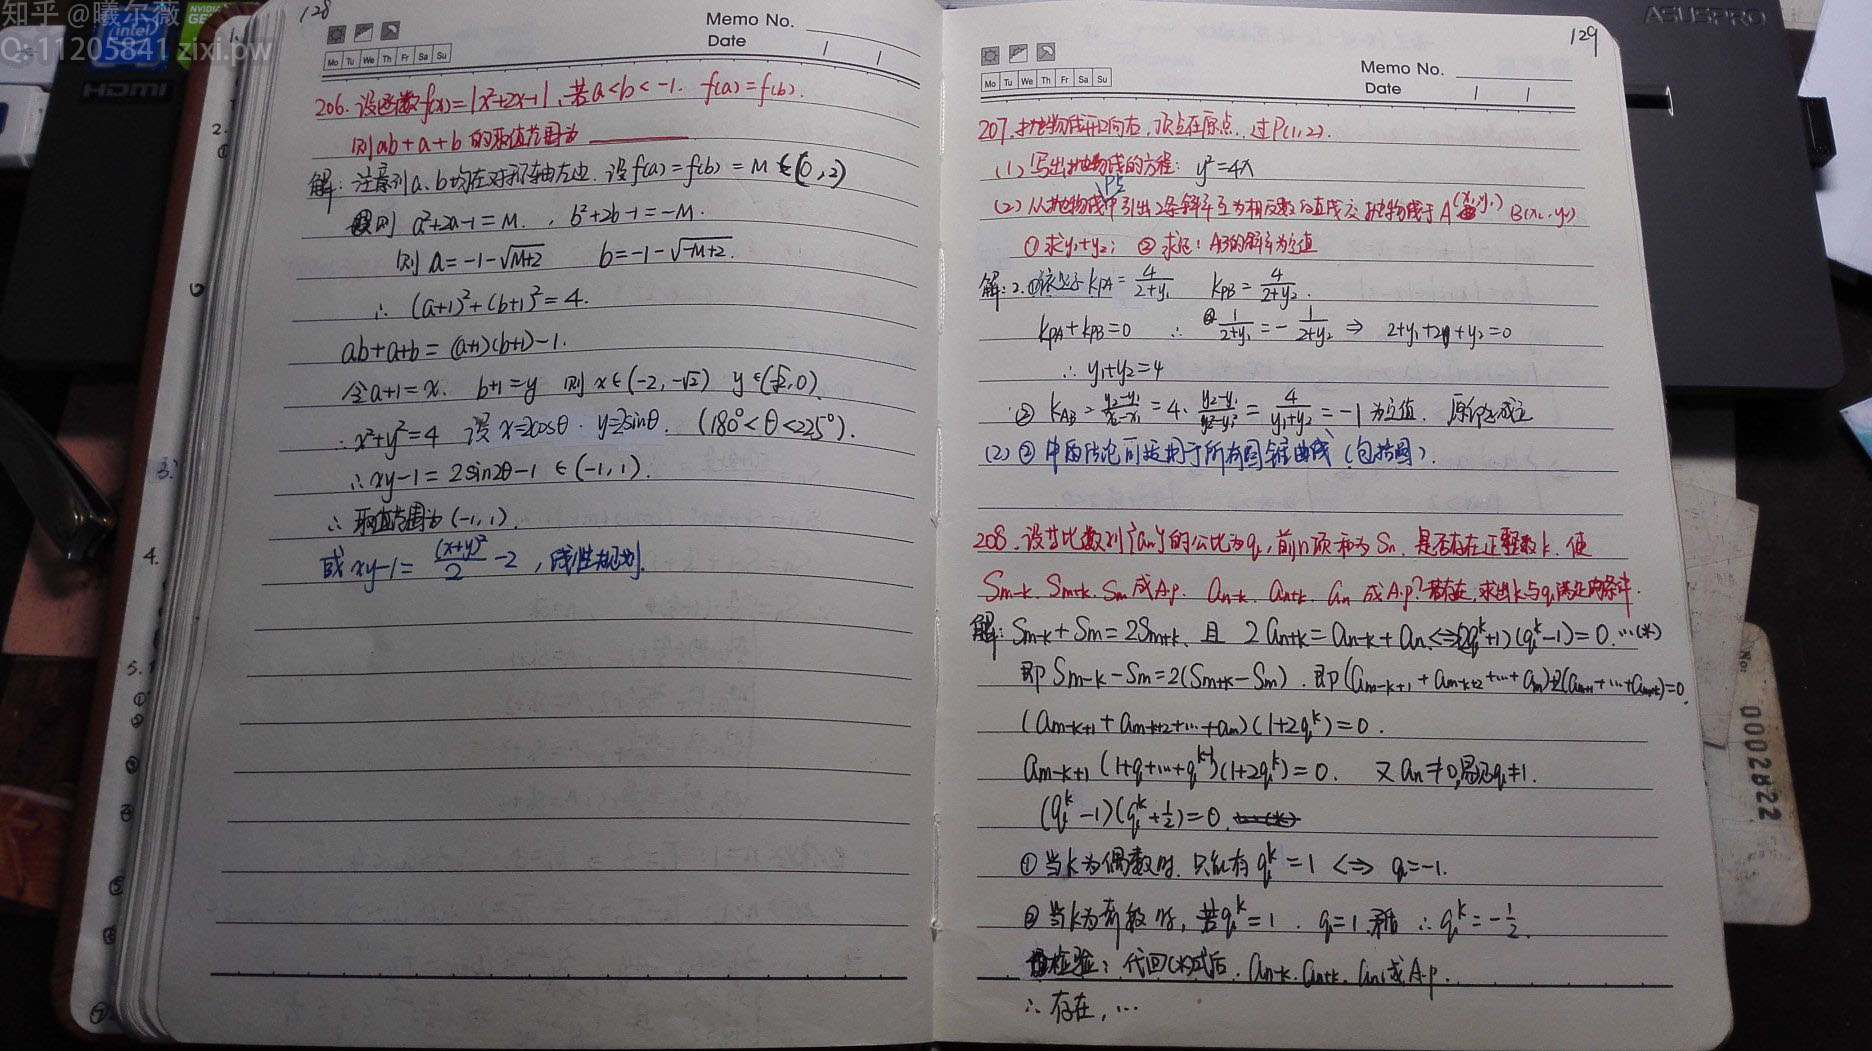 知乎 @曦尔薇
Q: 11205841 zixi.pw
intel
NVIDIA
HDMI
128
Memo No.
Date
Mo Tu We Th Fr Sa Su
206. 设函数f(x)=|x²+2x-1|, 若a<b<-1. f(a)=f(b).
则ab+a+b的取值范围为
解: 注意到a、b均在对称轴左边. 设f(a)=f(b)=M∈(0,2)
则 a²+2a-1=M. , b²+2b-1=-M.
则 a=-1-√M+2 b=-1-√-M+2.
∴ (a+1)²+(b+1)²=4.
ab+a+b=(a+1)(b+1)-1.
令a+1=x. b+1=y 则 x∈(-2,-√2) y∈(-√2,0).
∴x²+y²=4 设 x=2cosθ. y=2sinθ. (180°<θ<225°).
∴xy-1=2sin2θ-1 ∈(-1,1).
∴ 取值范围为(-1,1).
或 xy-1=(x+y)²/2-2, 线性规划.
ASUSPRO
129
Memo No.
Date
Mo Tu We Th Fr Sa Su
207. 抛物线开口向右, 顶点在原点. 过P(1,2).
(1) 写出抛物线的方程: y²=4x
(2) 从抛物线中P点引出2条斜率互为相反数的直线交抛物线于A(x₁,y₁) B(x₂,y₂)
① 求y₁+y₂; ② 求证: AB的斜率为定值
解: 2.① kPA=4/2+y₁ kPB=4/2+y₂.
kPA+kPB=0 ∴ 1/2+y₁=-1/2+y₂ ⇒ 2+y₁+2+y₂=0
∴ y₁+y₂=4
② kAB=y₂-y₁/x₂-x₁=4·y₂-y₁/y₂²-y₁²=4/y₁+y₂=-1 为定值. 原命题成立
(2)② 中的结论可适用于所有圆锥曲线 (包括圆).
208. 设等比数列{an}的公比为q, 前n项和为Sn. 是否存在正整数k. 使
Sm-k. Sm+k. Sm成A.p. an-k. an+k. an 成A.p? 若存在, 求出k与q满足的条件.
解: Sm-k+Sm=2Sm+k. 且 2an+k=an-k+an.⇔(2q^k+1)(q^k-1)=0. …(*)
即 Sm-k-Sm=2(Sm+k-Sm). 即(am-k+1+am-k+2+…+am)+2(am+1+…+am+k)=0.
(am-k+1+am-k+2+…+am)(1+2q^k)=0.
am-k+1(1+q+…+q^k-1)(1+2q^k)=0. 又an≠0,易见q≠1.
(q^k-1)(q^k+1/2)=0.
① 当k为偶数时. 只能有q^k=1 ⇔ q=-1.
② 当k为奇数时, 若q^k=1. q=1 矛盾 ∴ q^k=-1/2.
检验: 代回(*)式后. an-k. an+k. an成A.p.
∴ 存在, …
No:
0002822